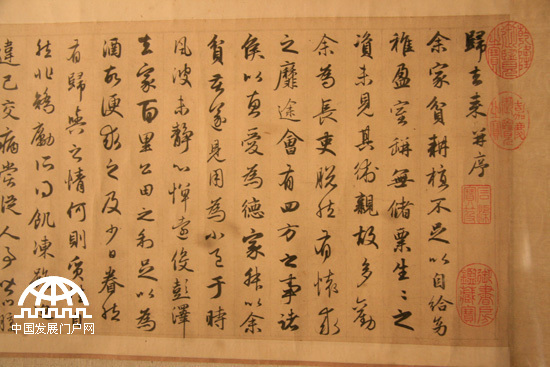 歸去来并序
余家貧耕植不足以自給幼
稚盈室缾無儲粟生〻之
資未見其術親故多勸
余為長吏脱然有懷求
之靡途會有四方之事諸
侯以惠愛為德家叔以余
貧苦遂見用為小邑于時
風波未靜心憚遠役彭澤
去家百里公田之利足以為
酒故便求之及少日眷然
有歸與之情何則質
然非矯勵所得飢凍雖
違己交病嘗從人事
中国发展门户网